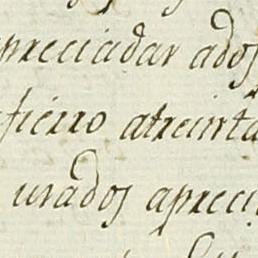 apreciadar ados
fierro atreinta
urados apreci